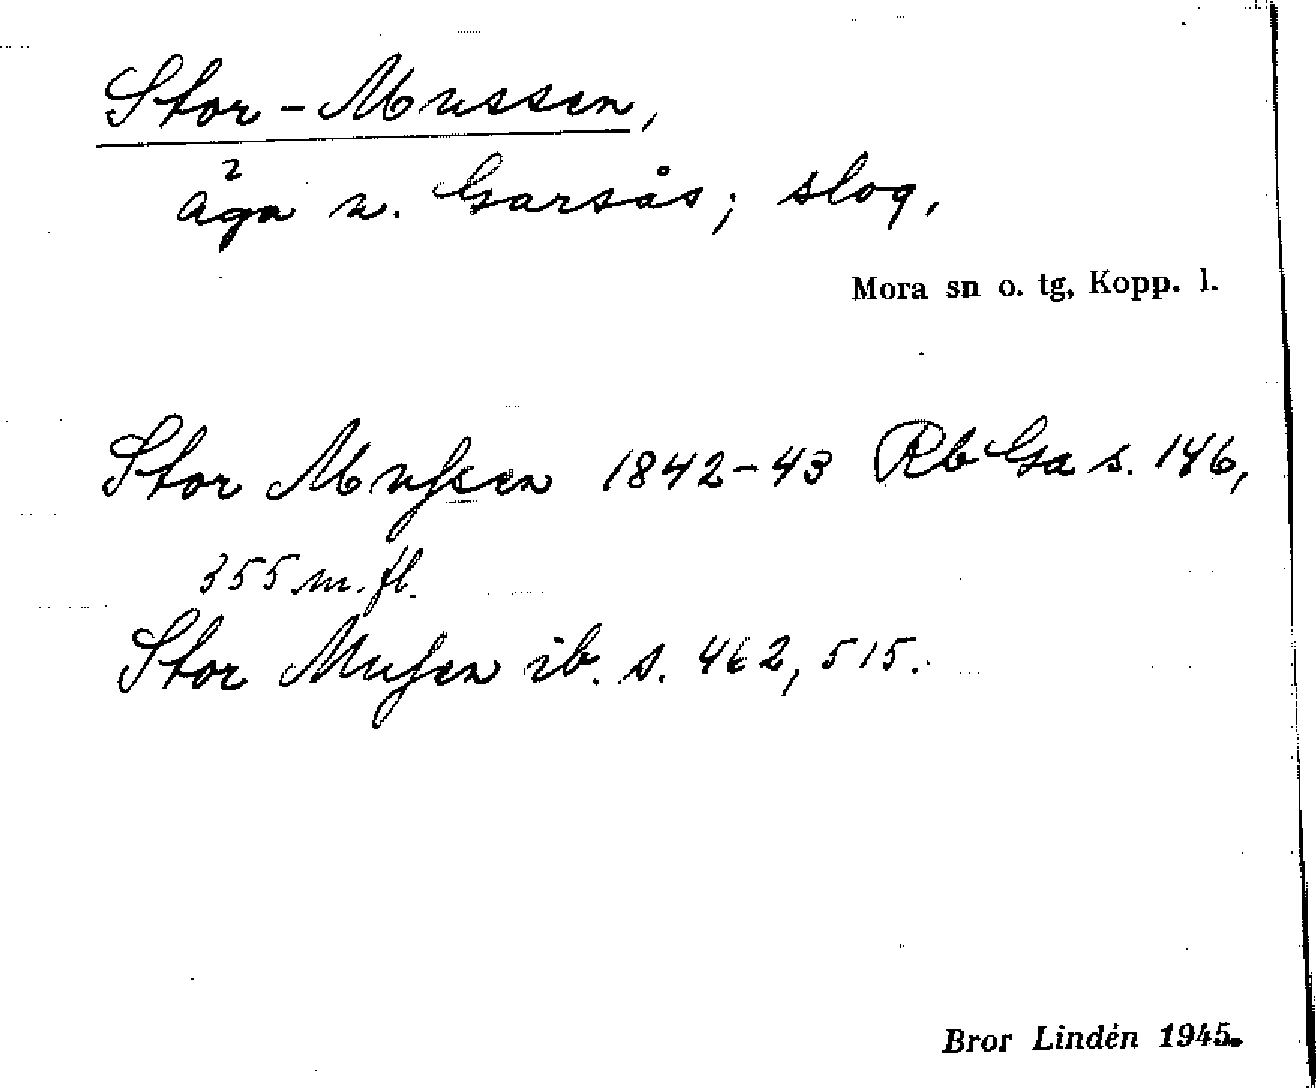 Stor-Mussen,
äga n. Garsås; slog,
Mora sn o. tg, Kopp. l.
Stor Mussen 1842-43 Rb Ga s. 146,
355 m. fl.
Stor Mussen ib. s. 462, 515.
Bror Lindén 1945.